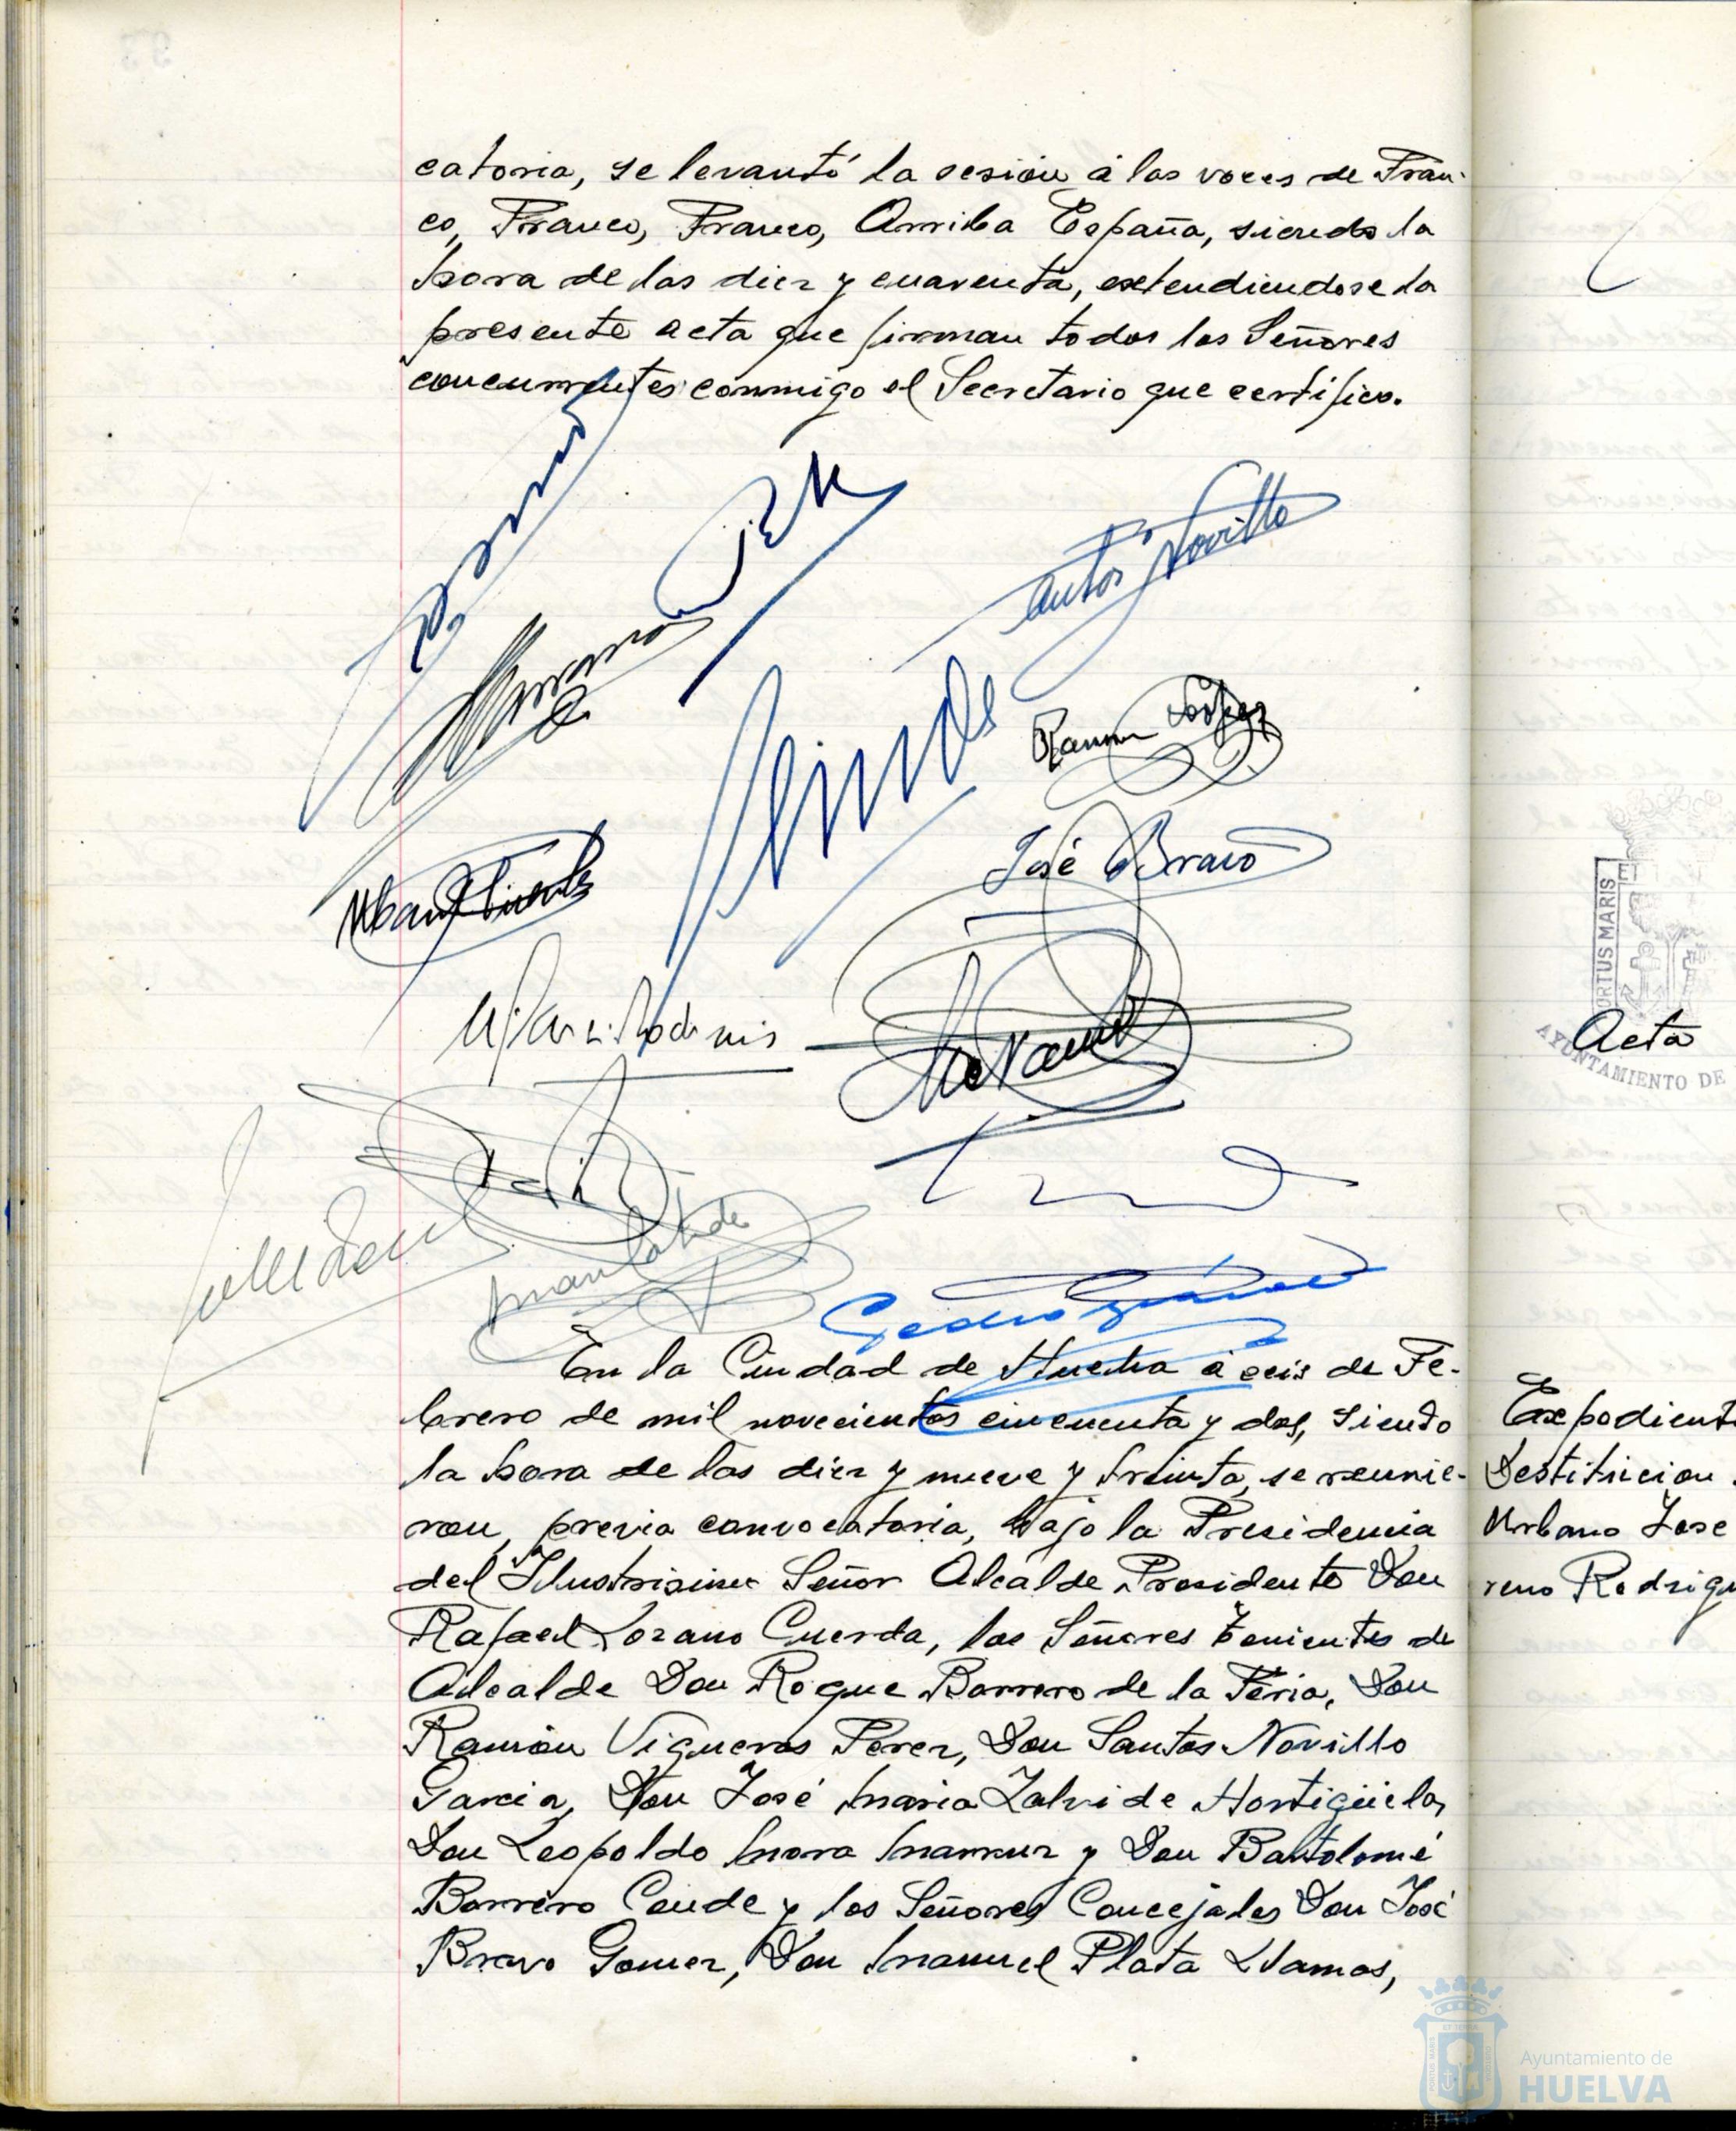 catoria, se levantó la sesion á las voces de Fran-
co, Franco, Franco, Arriba España, siendo la
hora de las diez y cuarenta, extendiendose la
presente acta que firman todos los Señores
concurrentes conmigo el Secretario que certifico.
Santos Novillo
Ramon
José Bravo
En la Ciudad de Huelva á seis de Fe-
brero de mil novecientos cincuenta y dos, siendo
la hora de las diez y nueve y treinta, se reunie-
ron, previa convocatoria, bajo la Presidencia
del Ilustrisimo Señor Alcalde Presidente Don
Rafael Lozano Cuerda, los Señores Tenientes de
Alcalde Don Roque Barrero de la Feria, Don
Ramón Vigueras Perez, Don Santos Novillo
Garcia, Don José Maria Zalvide Hortigüela,
Don Leopoldo Mora Marruz y Don Bartolomé
Borrero Conde y los Señores Concejales Don José
Bravo Gomez, Don Manuel Plata Llamas,
PORTUS MARIS ET
AYUNTAMIENTO DE
Acta
Expediente
Destitucion
Urbano Jose
reno Rodrigu
Ayuntamiento de
HUELVA